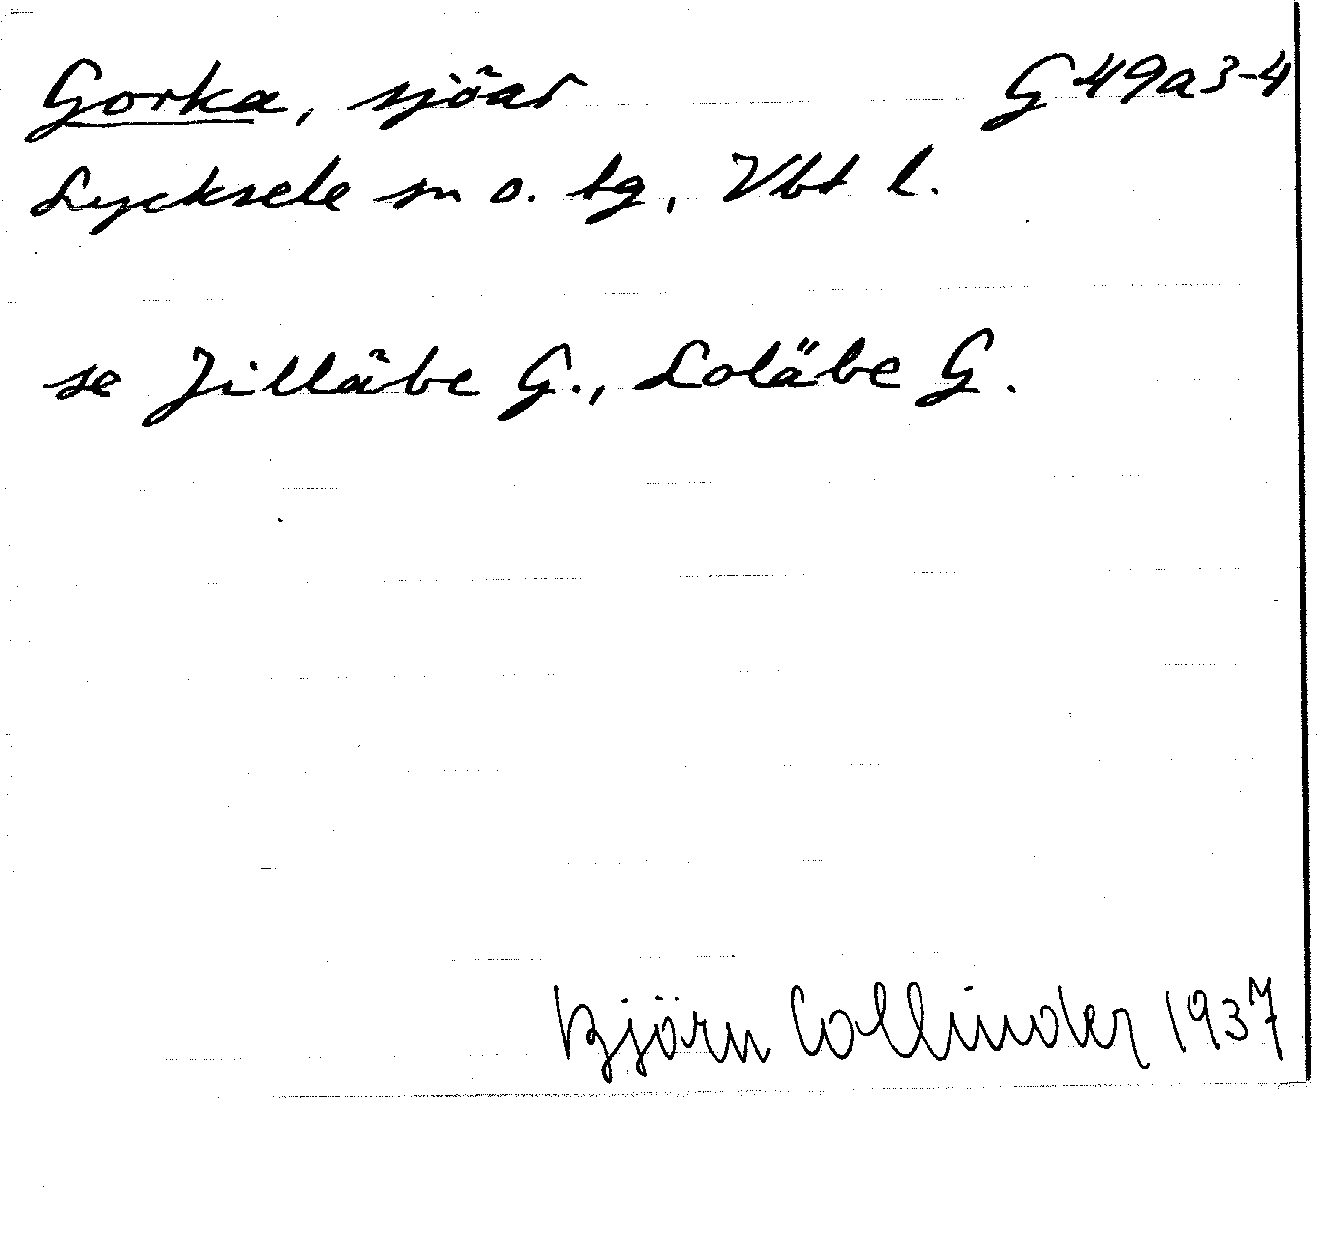 Gorka, sjöar G 49a3-4
Lycksele sn o. tg, Vbt l.
se Jilläbe G., Loläbe G.
Björn Collinder 1937